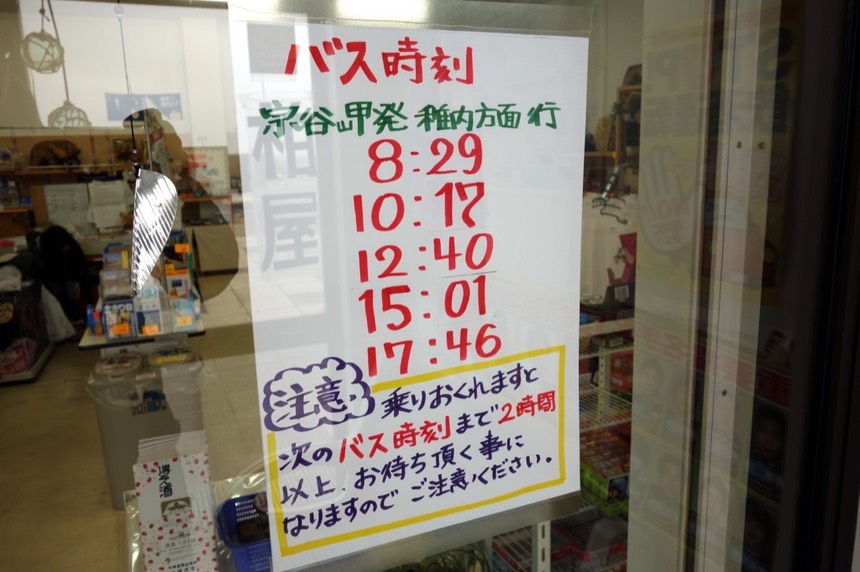 バス時刻
宗谷岬発 稚内方面行
8:29
10:17
12:40
15:01
17:46
注意 乗りおくれますと
次のバス時刻まで2時間
以上、お待ち頂く事に
なりますので ご注意ください。
柏屋